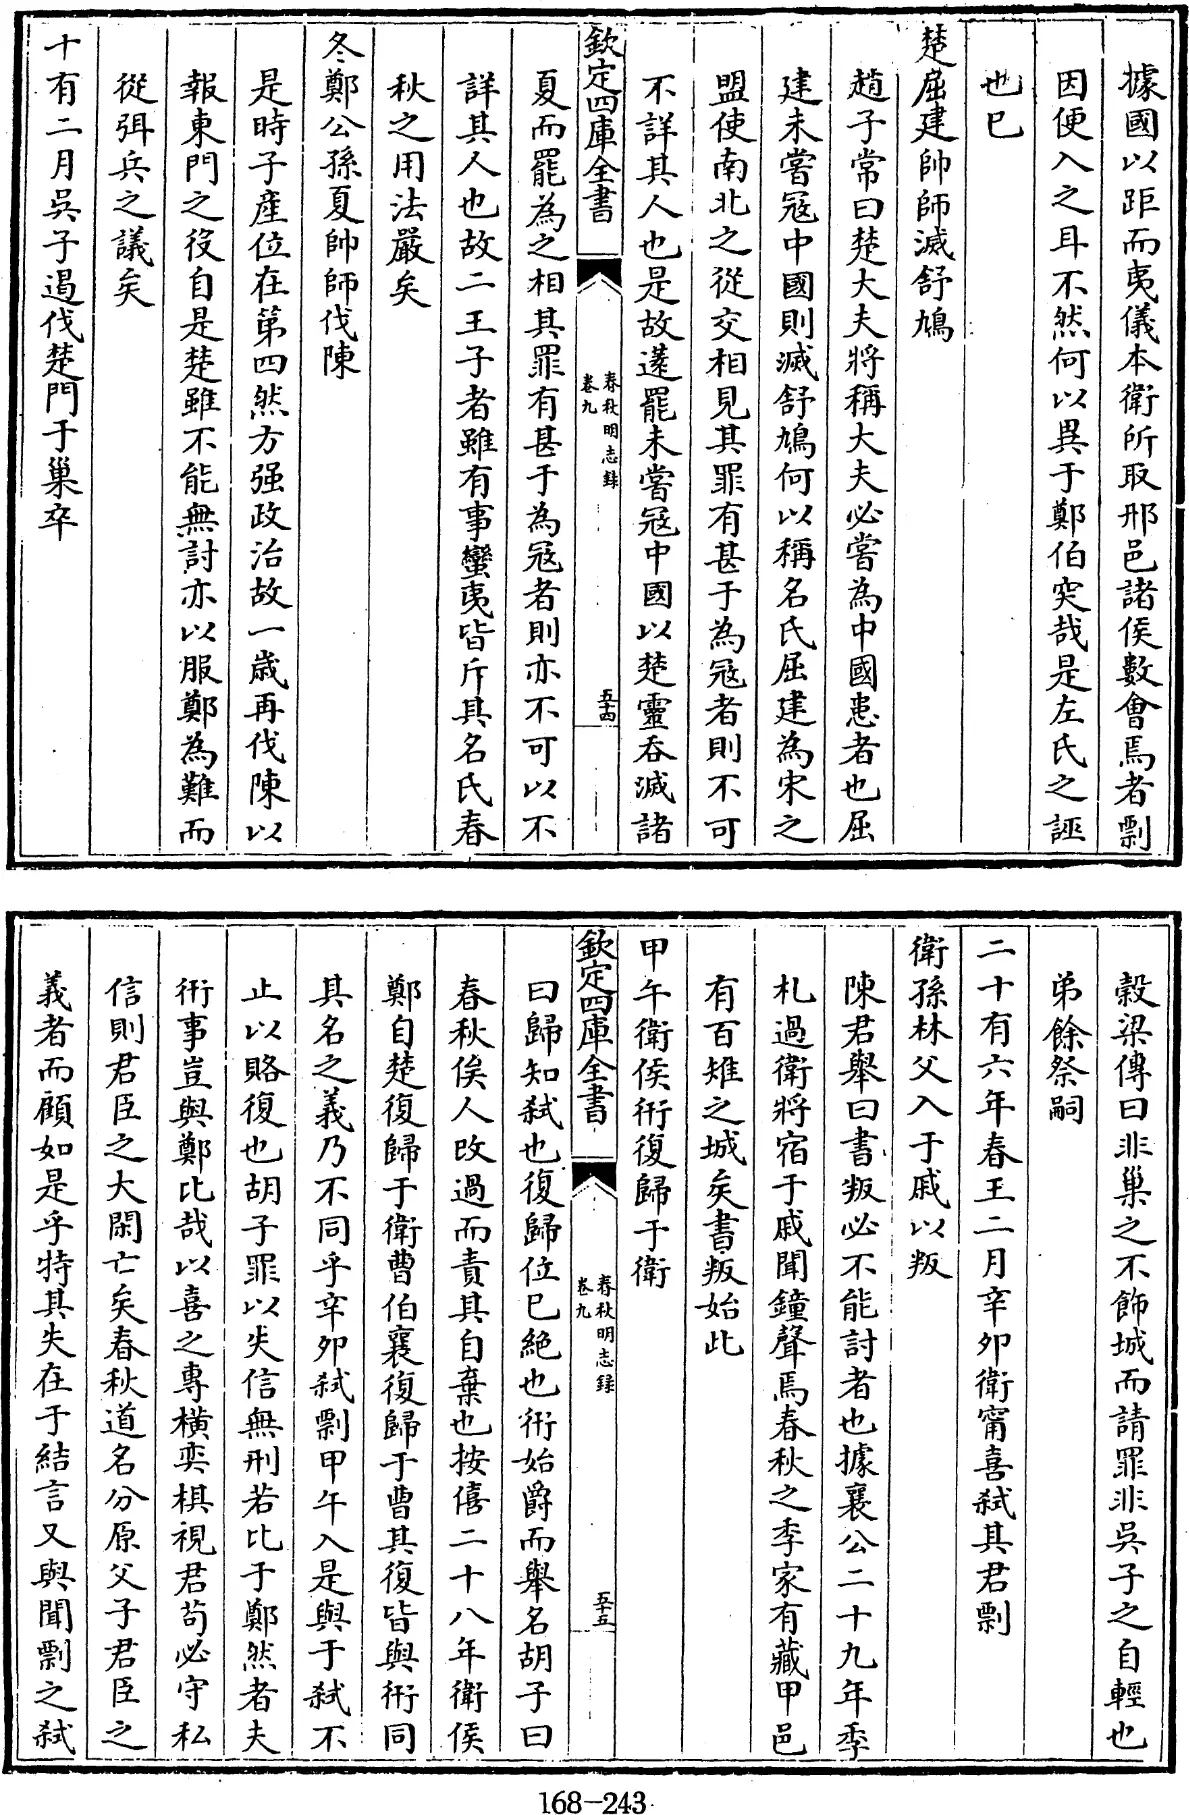 據國以距而夷儀本衛所取邢邑諸侯數會焉者剽
因便入之耳不然何以異于鄭伯突哉是左氏之誣
也已
楚屈建帥師滅舒鳩
趙子常曰楚大夫將稱大夫必嘗為中國患者也屈
建未嘗冦中國則滅舒鳩何以稱名氏屈建為宋之
盟使南北之從交相見其罪有甚于為冦者則不可
不詳其人也是故薳罷未嘗冦中國以楚靈吞滅諸
欽定四庫全書
春秋明志録
卷九
五十四
夏而罷為之相其罪有甚于為冦者則亦不可以不
詳其人也故二王子者雖有事蠻夷皆斥其名氏春
秋之用法嚴矣
冬鄭公孫夏帥師伐陳
是時子產位在第四然方强政治故一歲再伐陳以
報東門之役自是楚雖不能無討亦以服鄭為難而
從弭兵之議矣
十有二月吳子遏伐楚門于巢卒
穀梁傳曰非巢之不飾城而請罪非吳子之自輕也
弟餘祭嗣
二十有六年春王二月辛卯衛甯喜弒其君剽
衛孫林父入于戚以叛
陳君舉曰書叛必不能討者也據襄公二十九年季
札過衛將宿于戚聞鐘聲焉春秋之季家有藏甲邑
有百雉之城矣書叛始此
甲午衛侯衎復歸于衛
欽定四庫全書
春秋明志録
卷九
五十五
曰歸知弒也復歸位已絶也衎始爵而舉名胡子曰
春秋俟人改過而責其自棄也按僖二十八年衛侯
鄭自楚復歸于衛曹伯襄復歸于曹其復皆與衎同
其名之義乃不同乎辛卯弒剽甲午入是與于弒不
止以賂復也胡子罪以失信無刑若比于鄭然者夫
衎事豈與鄭比哉以喜之專橫奕棋視君苟必守私
信則君臣之大閑亡矣春秋道名分原父子君臣之
義者而顧如是乎特其失在于結言又與聞剽之弒
168-243